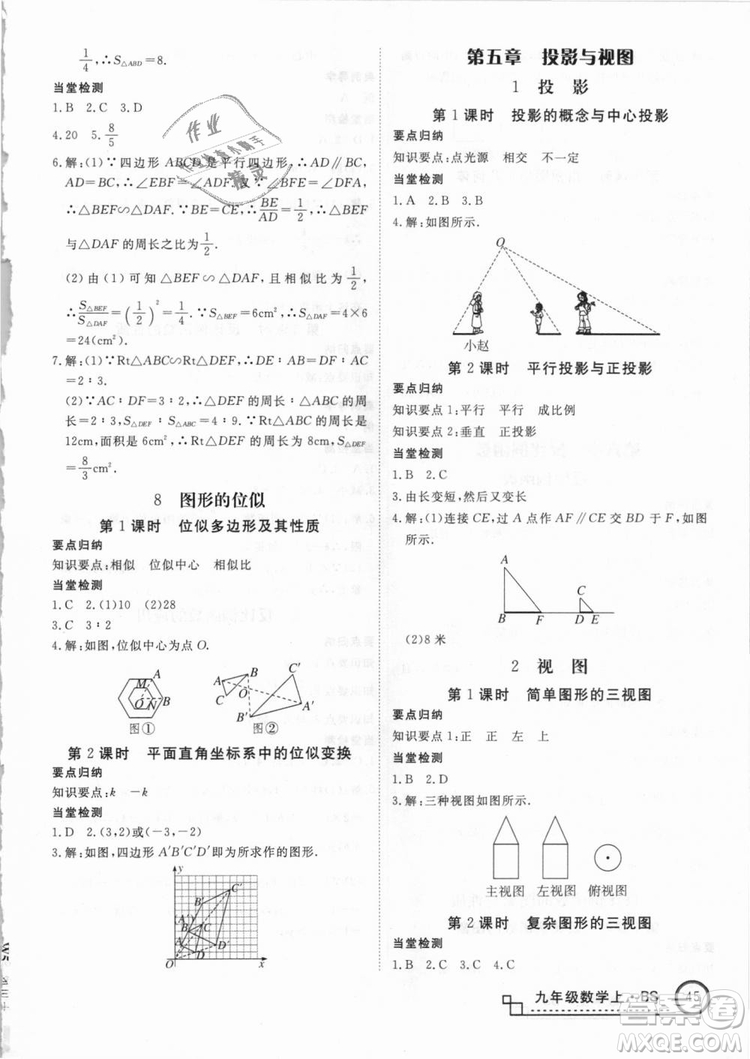 1/4,∴S△ABD=8.
当堂检测
1.B 2.C 3.D
4.20 5.8/5
6.解:(1)∵四边形ABCD是平行四边形,∴AD∥BC,
∴∠EBF=∠ADF,∠BEF=∠DAF,∴△BEF
∽△DAF.又∵BE=CE,∴BE/AD=1/2,∴△BEF
与△DAF的周长之比为1/2.
(2)由(1)可知△BEF∽△DAF,且相似比为1/2,
∴S△BEF/S△DAF=(1/2)²=1/4.∵S△BEF=6cm²,∴S△DAF=4×6
=24(cm²).
7.解:(1)∵Rt△ABC∽Rt△DEF,∴AB∶DE=3∶
2∶3.
(2)∵AC∶DF=3∶2,∴C△ABC∶C△DEF=3∶2,
∴S△ABC∶S△DEF=4∶9.∵Rt△ABC的周长是
12cm,面积是6cm²,∴Rt△DEF的周长为8cm,面积为
8/3cm².
8 图形的位似
第1课时 位似多边形及其性质
要点归纳
知识要点:相似 位似中心 相似比
当堂检测
1.C 2.(1)10 (2)28
3.C 3∶2
4.解:如图,位似中心为点O.
M A B O N
图①
A B C O C′ A′ B′
图②
第2课时 平面直角坐标系中的位似变换
要点归纳
知识要点:k -k
当堂检测
1.D 2.(3,2)或(-3,-2)
3.解:如图,四边形A′B′C′D′即为所求作的图形.
y
C′
(A′)
D′
O x
第五章 投影与视图
1 投影
第1课时 投影的概念与中心投影
要点归纳
知识要点:点光源 相交 不一定
当堂检测
1.A 2.B 3.B
4.解:如图所示.
O
小赵
第2课时 平行投影与正投影
要点归纳
知识要点1:平行 成比例
知识要点2:垂直 正投影
当堂检测
1.B 2.C
3.由长变短,然后又变长
4.解:(1)连接CE,过A点作AF∥CE交BD于F,如图
所示.
A
C
B F D E
(2)8米
2 视图
第1课时 简单图形的三视图
要点归纳
知识要点:正 正 左 上
当堂检测
1.B 2.C
3.解:三种视图如图所示.
主视图 左视图 俯视图
第2课时 复杂图形的三视图
当堂检测
1.C 2.B
九年级数学上·BS 45